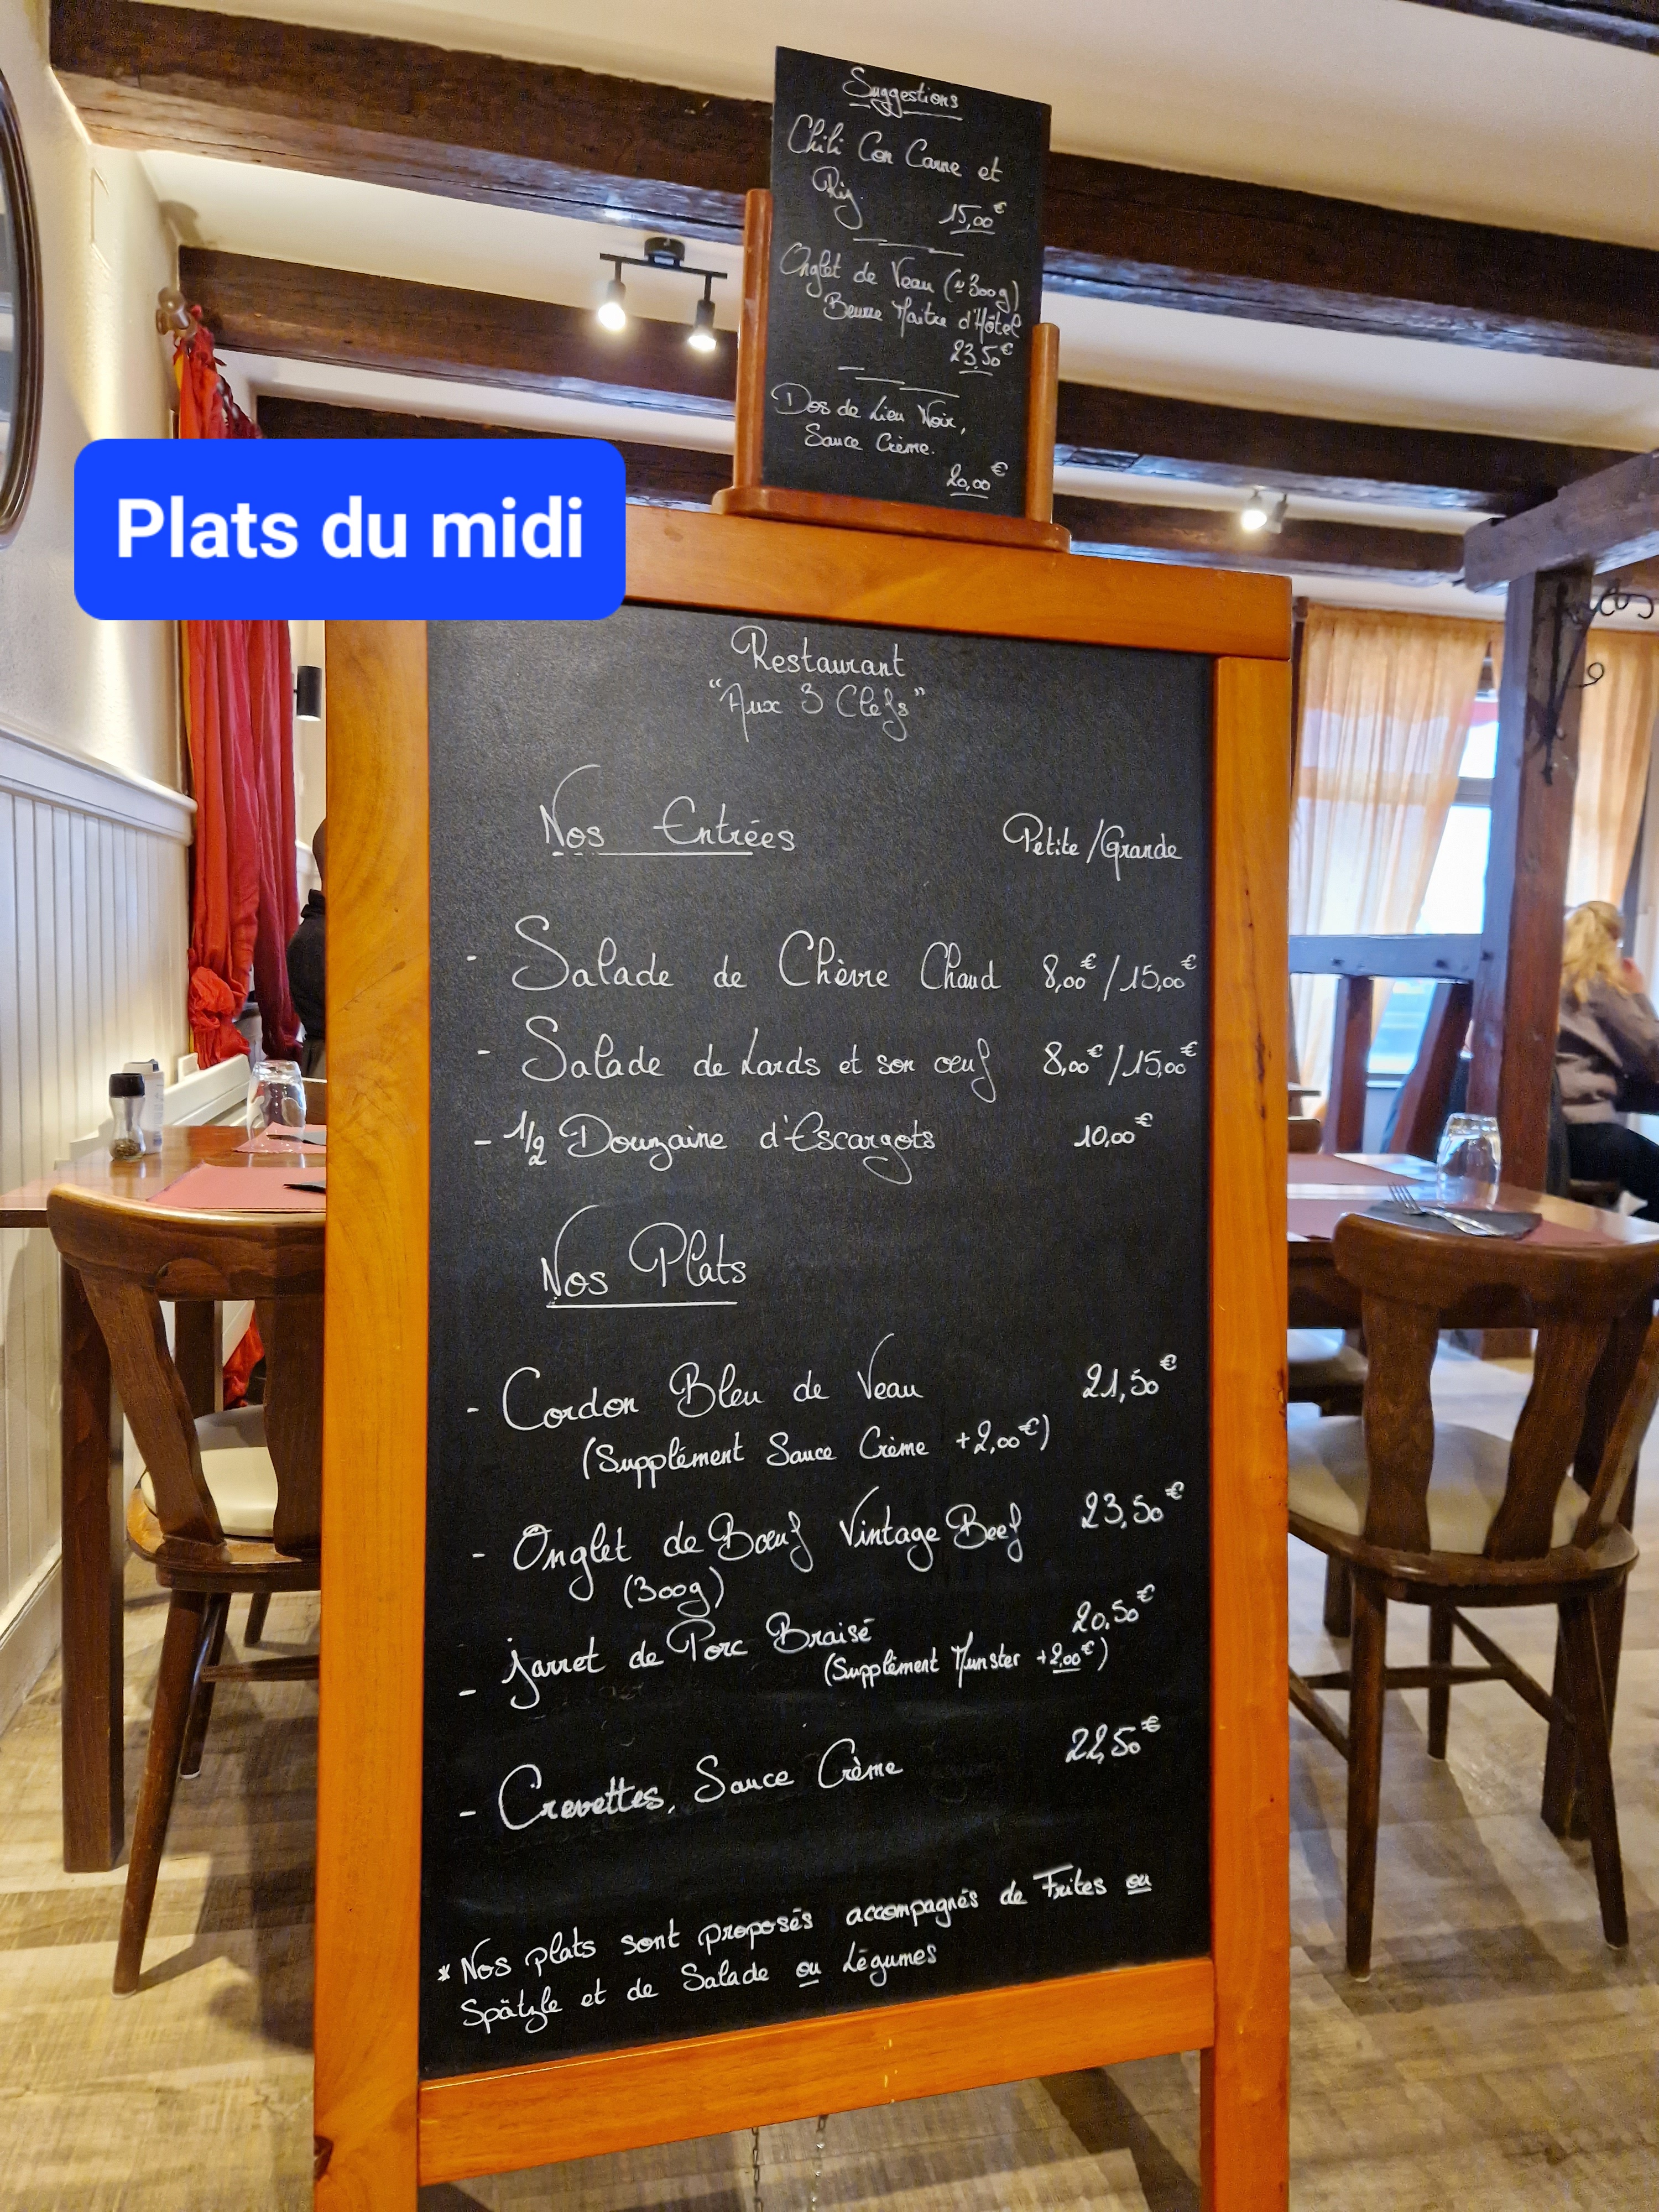 Suggestions
Chili Con Carne et
Riz
15,00€
Onglet de Veau (≈300g)
Beurre Maitre d'Hôtel
23,50€
Dos de Lieu Noir,
Sauce Crème.
20,00€
Plats du midi
Restaurant
"Aux 3 Clefs"
Nos Entrées Petite/Grande
- Salade de Chèvre Chaud 8,00€/15,00€
- Salade de Lards et son oeuf 8,00€/15,00€
- 1/2 Douzaine d'Escargots 10,00€
Nos Plats
- Cordon Bleu de Veau 21,50€
(Supplément Sauce Crème +2,00€)
- Onglet de Bœuf Vintage Beef 23,50€
(300g)
- jarret de Porc Braisé 20,50€
(Supplément Munster +2,00€)
- Crevettes, Sauce Crème 22,50€
* Nos plats sont proposés accompagnés de Frites ou
Spätzle et de Salade ou Légumes